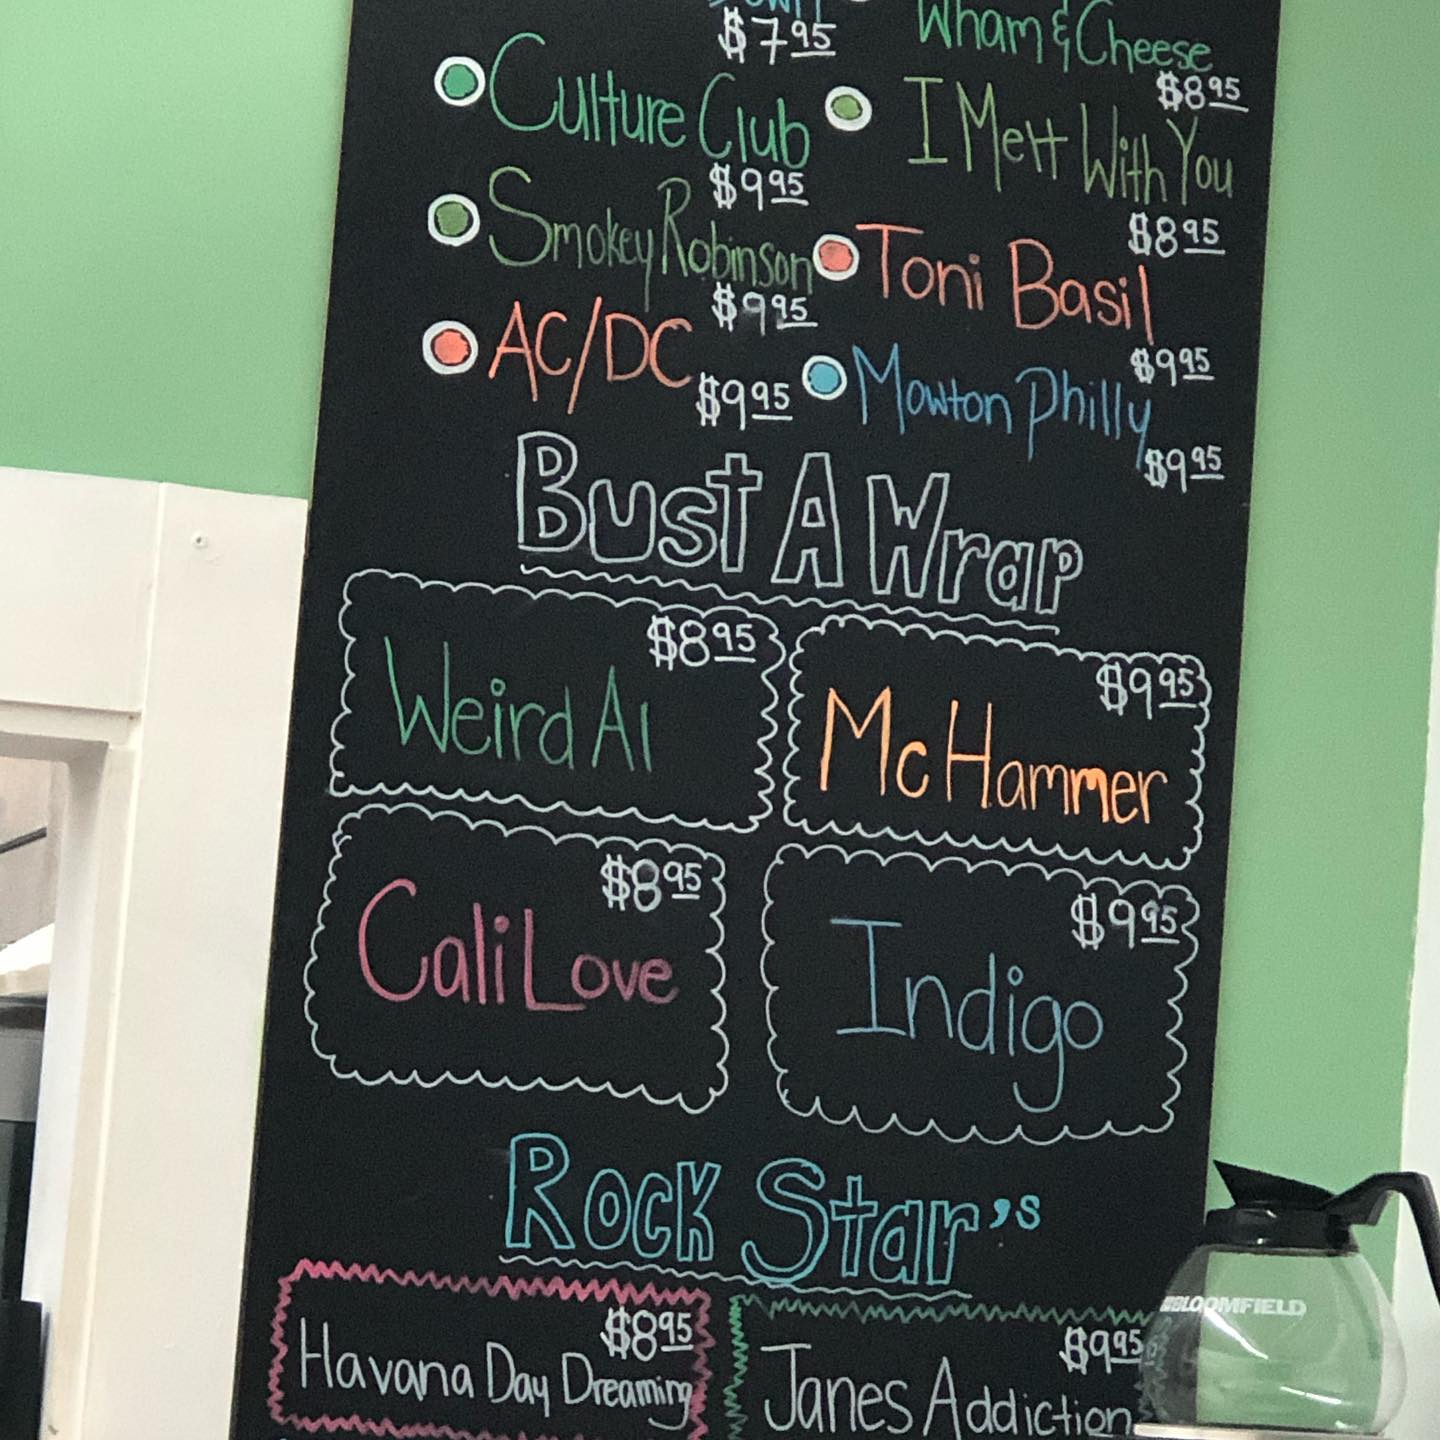 $7.95
Wham & Cheese
$8.95
Culture Club
$9.95
I Melt With You
$8.95
Smokey Robinson
$9.95
Toni Basil
$9.95
AC/DC
$9.95
Mowton Philly
$9.95
Bust A Wrap
$8.95
Weird Al
$9.95
Mc Hammer
$8.95
Cali Love
$9.95
Indigo
Rock Star's
$8.95
Havana Day Dreaming
$9.95
Janes Addiction
BLOOMFIELD